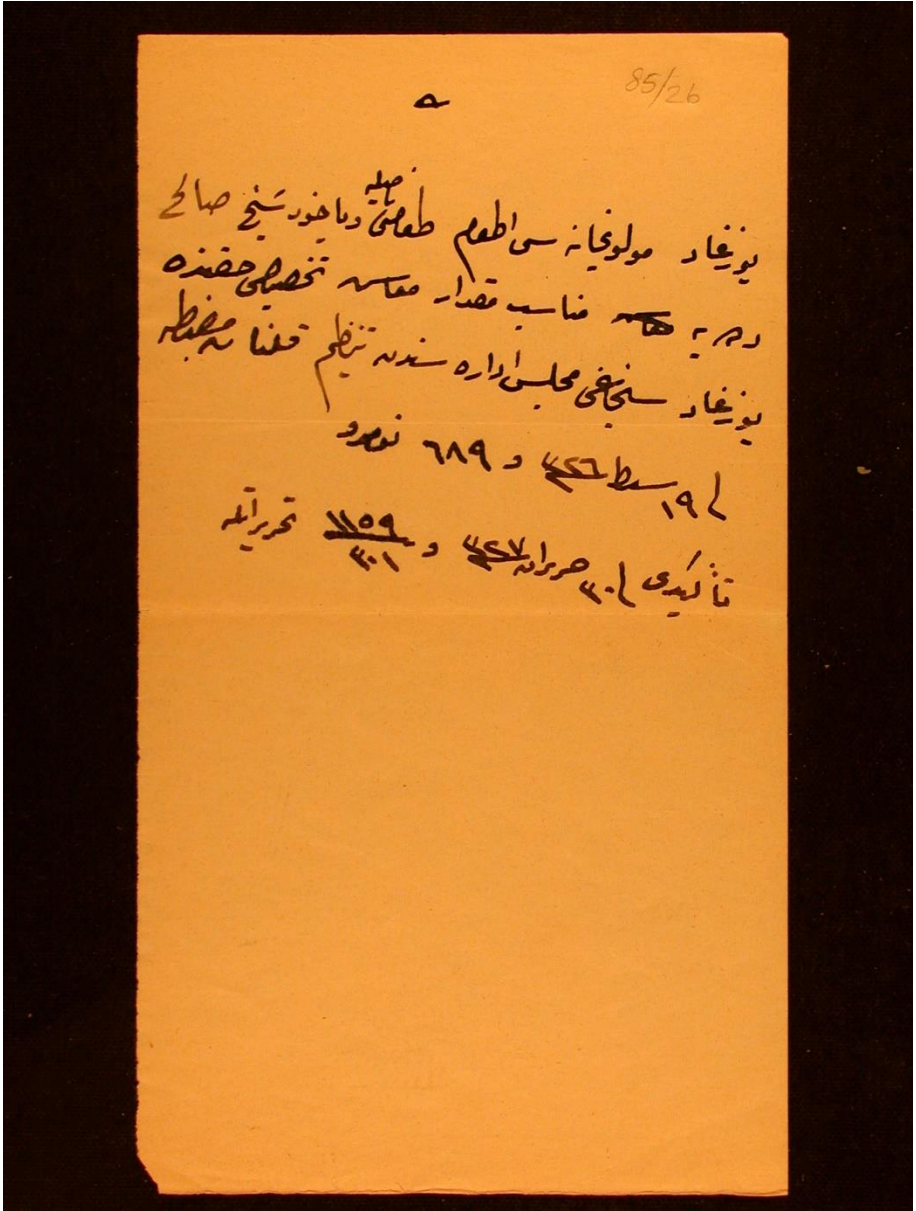 85/26
یوزغاد مولویخانه سی اطعام طعامیه ویاخود شیخ صالح
دده یه مناسب مقدار معاش تخصیصی حقنده
یوزغاد سنجاغی مجلس اداره سندن تنظیم قلنان مضبطه
١٩ شباط ٣٢٦ و ٦٨٩ نومرو
تأکیدی ٣٠ حزیران ٣٢٧ و ١١٥٩/٣٠١ تحریراتله